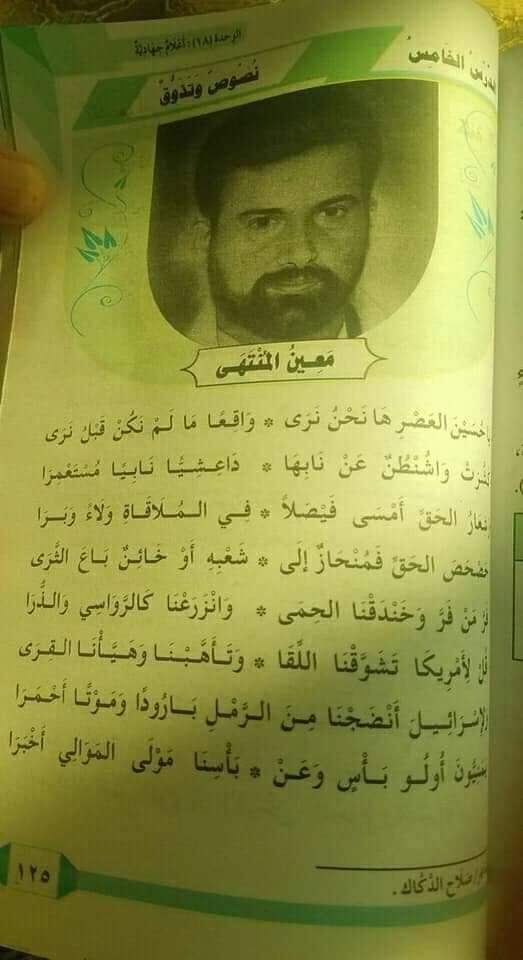 الوحدة (١٨): أعلام جهادية
الدرس الخامس
نُصُوصٌ وَتَذَوُّقٌ
مَعِينُ المُنْتَهَى
يا حُسَيْنَ العَصْرِ هَا نَحْنُ نَرَى * وَاقِعًا مَا لَمْ نَكُنْ قَبْلُ نَرَى
وَاشُنْطُنٌ عَنْ نَابِهَا * دَاعِشِيًّا نَابِيًا مُسْتَعْمِرَا
الحَقِّ أَمْسَى فَيْصَلاً * فِي المُلَاقَاةِ وَلَاءً وَبَرَا
الحَقُّ فَمُنْحَازٌ إِلَى * شَعْبِهِ أَوْ خَائِنٌ بَاعَ الثَّرَى
فَرَّ مَنْ فَرَّ وَخَنْدَقْنَا الحِمَى * وَانْزَرَعْنَا كَالرَّوَاسِي وَالذُّرَا
قُلْ لِأَمْرِيكَا تَشَوَّقْنَا اللِّقَا * وَتَأَهَّبْنَا وَهَيَّأْنَا القِرَى
وَلِإِسْرَائِيلَ أَنْضَجْنَا مِنَ الرَّمْلِ بَارُودًا وَمَوْتًا أَحْمَرَا
يَمَنِيُّونَ أُولُو بَأْسٍ وَعَنْ * بَأْسِنَا مَوْلَى المَوَالِي أَخْبَرَا
صلاح الدكاك.
١٢٥